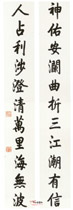 神佑安瀾曲折三江潮有信
人占利涉澄清萬里海無波